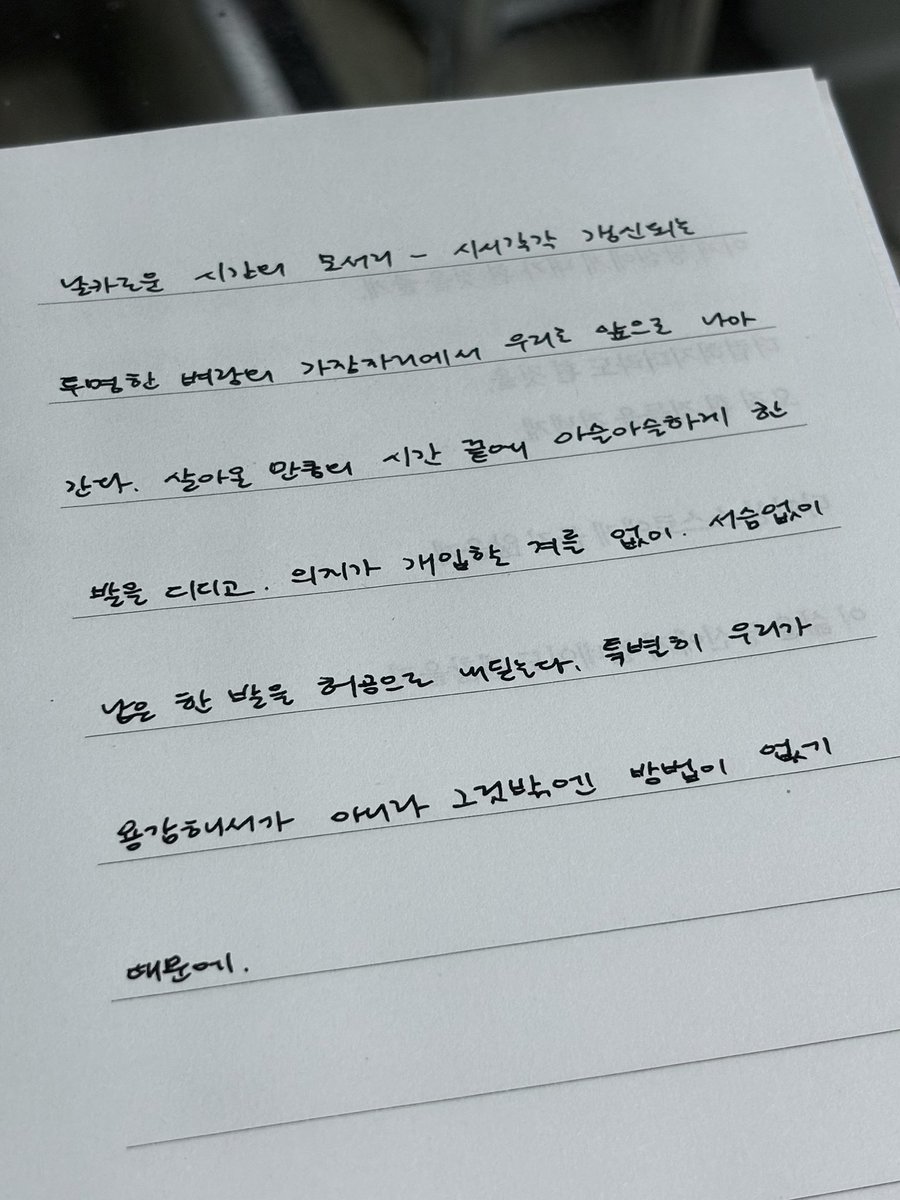 날카로운 시간의 모서리 - 시시각각 갱신되는
투명한 벼랑의 가장자리에서 우리는 앞으로 나아
간다. 살아온 만큼의 시간 끝에 아슬아슬하게 한
발을 디디고. 의지가 개입할 겨를 없이. 서슴없이
남은 한 발을 허공으로 내딛는다. 특별히 우리가
용감해서가 아니라 그것밖엔 방법이 없기
때문에.